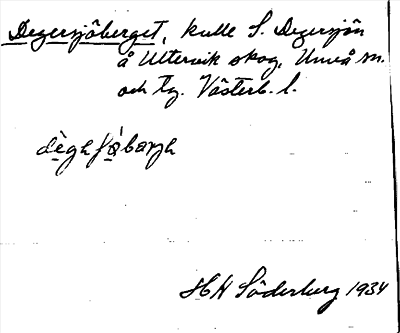 Degersjöberget, kulle S. Degersjön
å Ultervik skog, Umeå sn.
och tg. Västerb. l.
HN Söderberg 1934